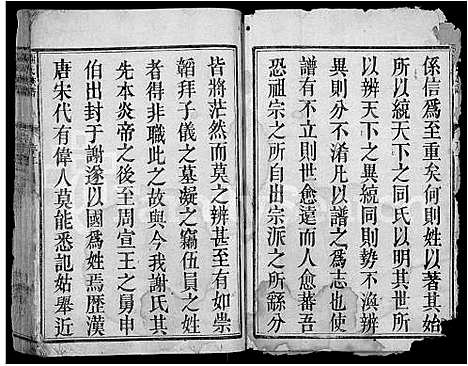 係信爲至重矣何則姓以著其始
所以統天下之同氏以明其世所
以辨天下之異統同則勢不淆辨
異則分不淆凡以譜之爲志也使
譜有不立則世愈遠而人愈蕃吾
恐祖宗之所自出宗派之所繇分
皆將茫然而莫之辨甚至有如崇
韜拜子儀之墓凝之竊伍員之姓
者得非職此之故與今我謝氏其
先本炎帝之後至周宣王之舅申
伯出封于謝遂以國爲姓焉歷漢
唐宋代有偉人莫能悉記姑舉近